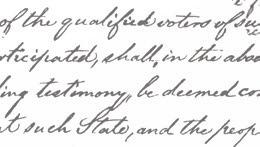 of the qualified voters of su
rticipated, shall, in the abs
ling testimony, be deemed co
t such State, and the peop